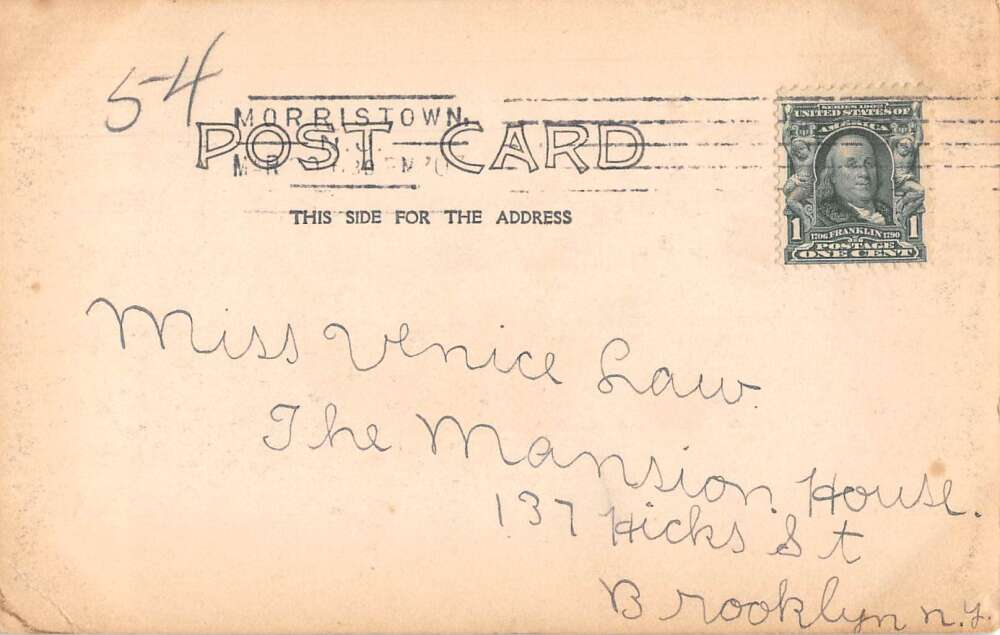 54
MORRISTOWN,
N.J.
POST CARD
THIS SIDE FOR THE ADDRESS
SERIES 1902
UNITED STATES OF
AMERICA
1706 FRANKLIN 1790
1 1
POSTAGE
ONE CENT
Miss Venice Law.
The Mansion House.
137 Hicks St
Brooklyn n.y.